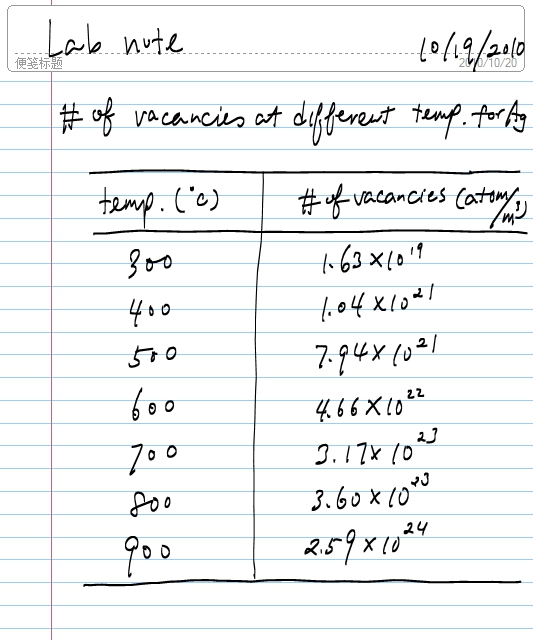 Lab note 10/19/2010
便笺标题 2010/10/20
# of vacancies at different temp. for Ag
temp. (°C) # of vacancies (atom/m³)
300 1.63×10¹⁹
400 1.04×10²¹
500 7.94×10²¹
600 4.66×10²²
700 3.17×10²³
800 3.60×10²³
900 2.59×10²⁴